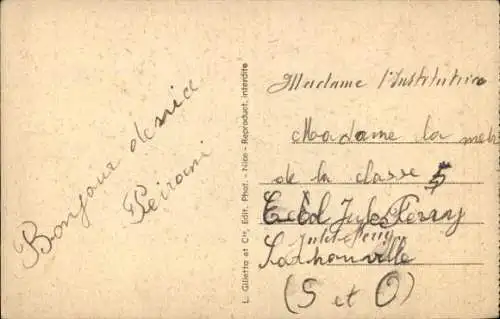 Bonjour de nice
Peirani
L. Gilletta et Cie, Edit. Phot. - Nice - Reproduct. interdite
Madame l'Institutrice
Madame la
de la classe 5
Jules Ferry
Jules Ferry
Sartrouville
(S et O)